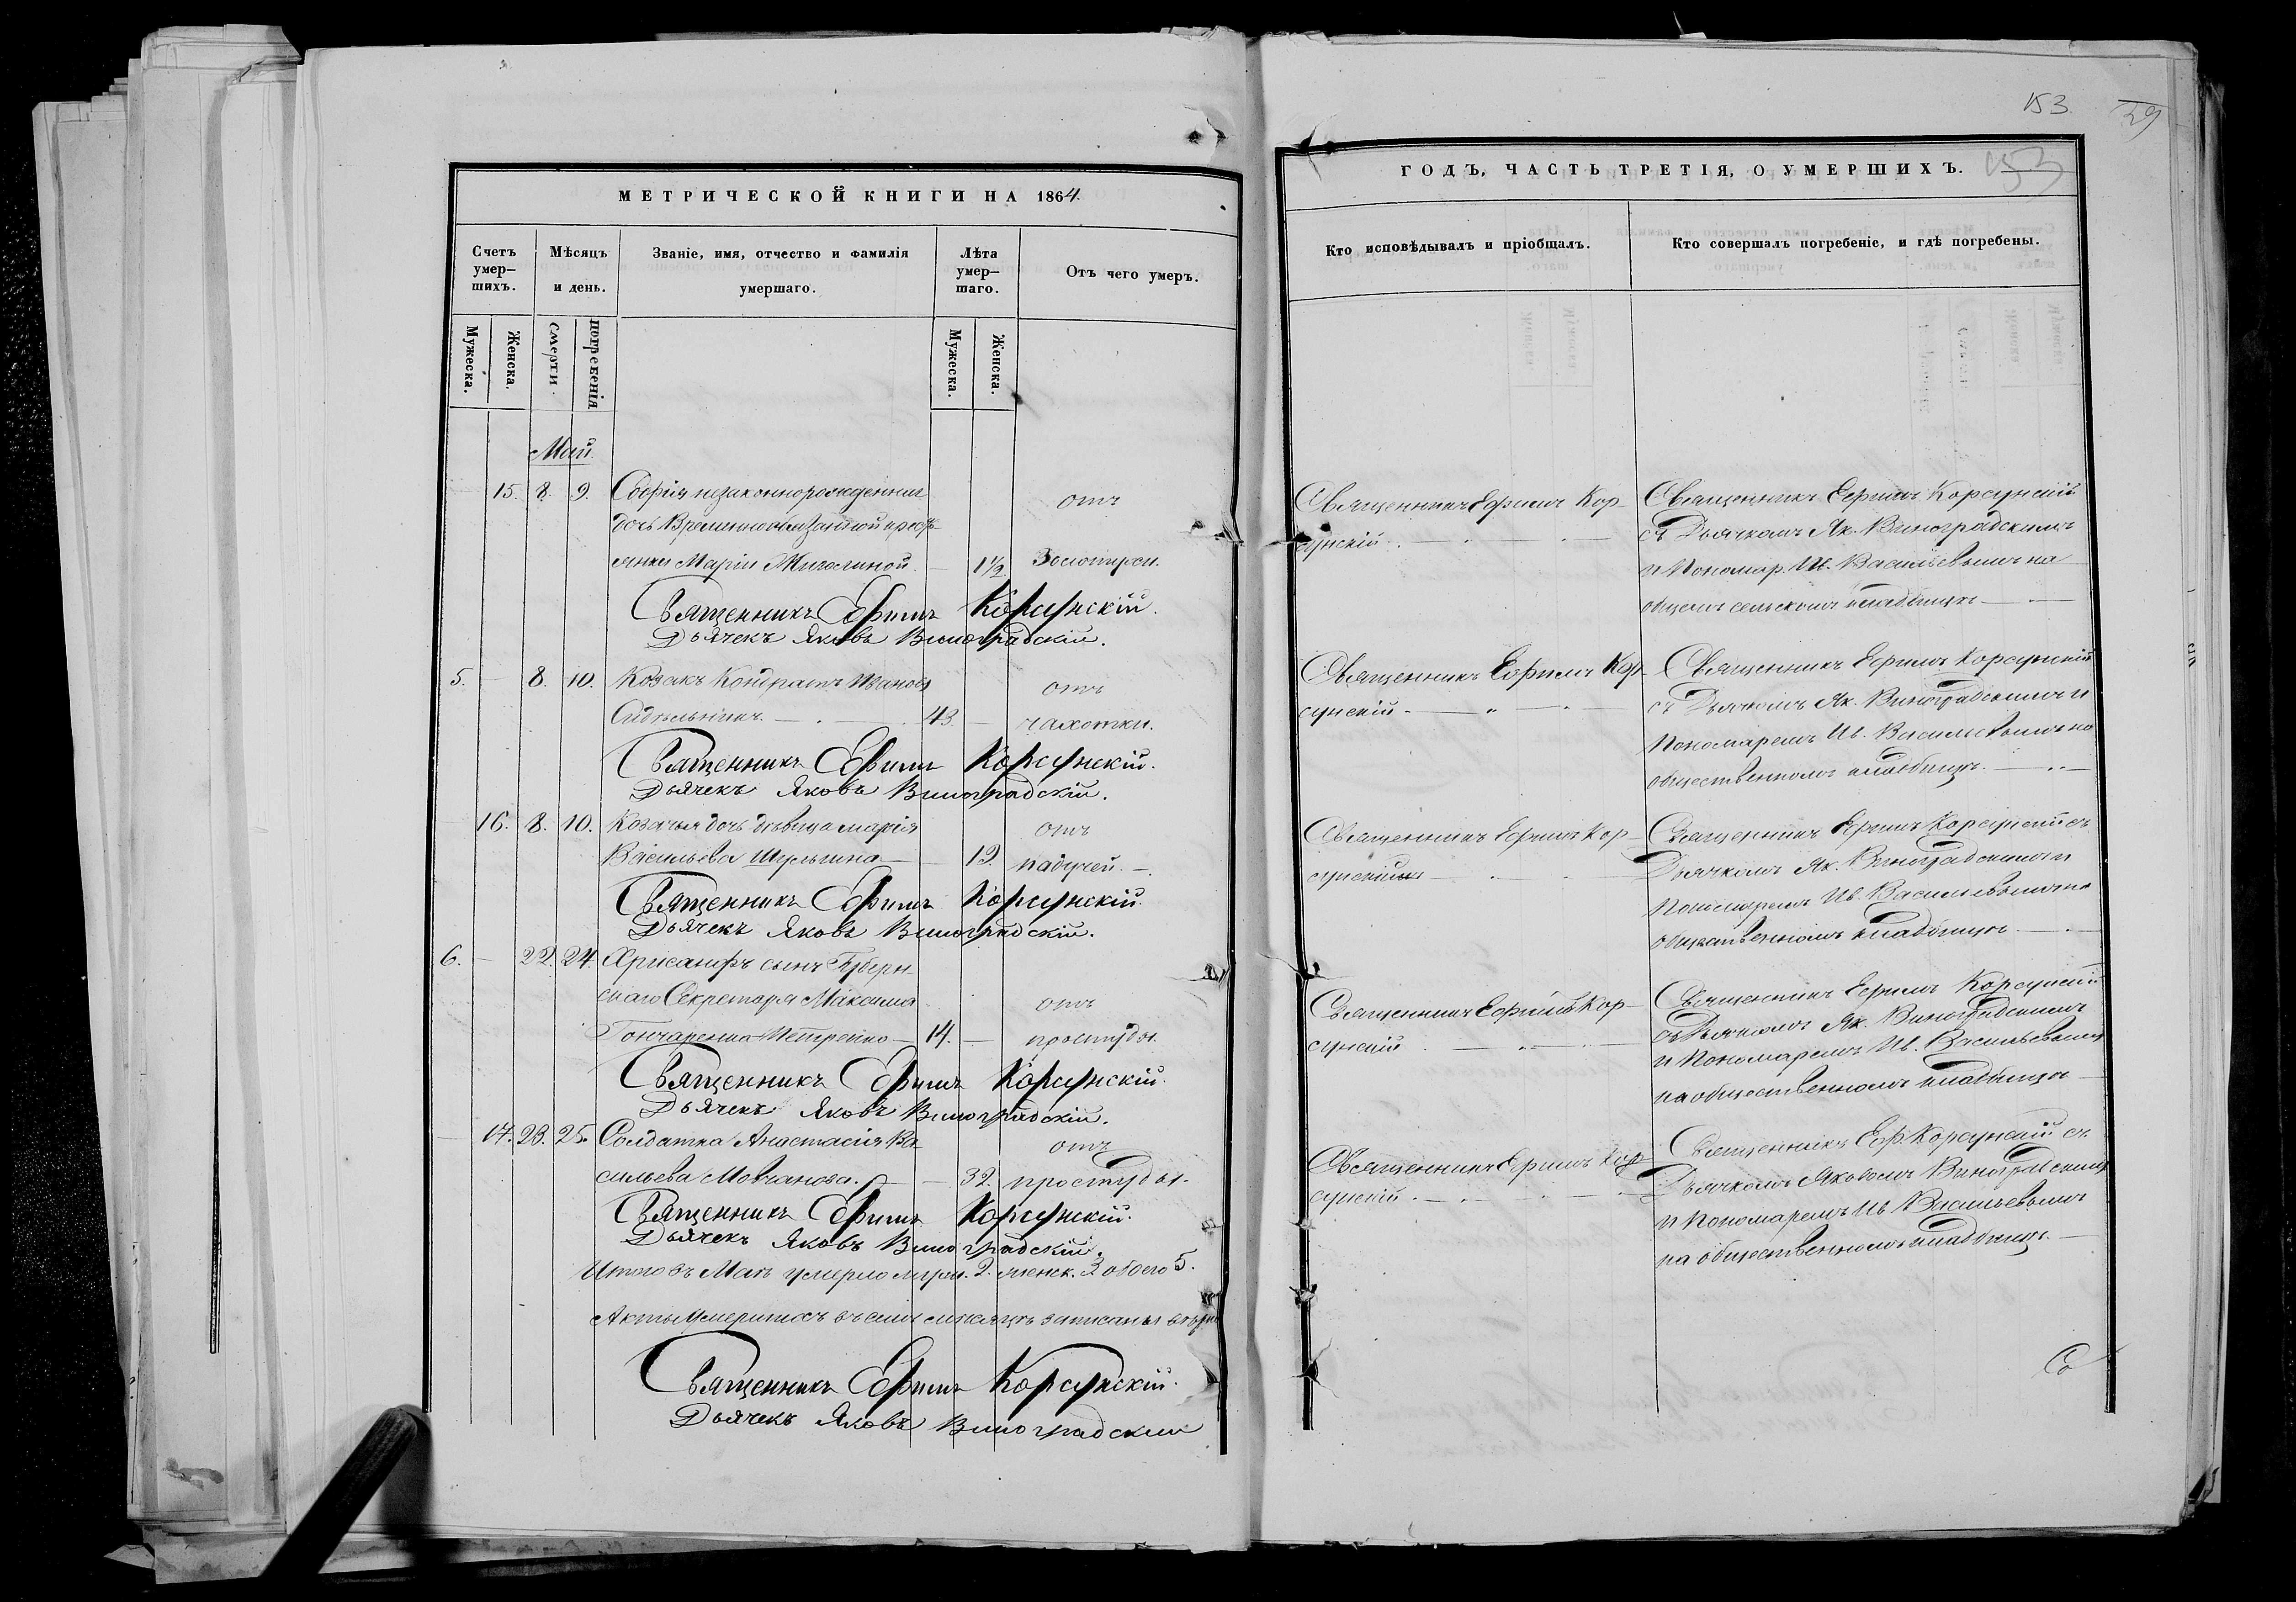 МЕТРИЧЕСКОЙ КНИГИ НА 1864.
Счетъ умер–шихъ.
Мѣсяцъ и день.
Званіе, имя, отчество и фамилія умершаго.
Лѣта умер–шаго.
Отъ чего умеръ.
Мужеска.
Женска.
смерти.
погребенія
Мужеска.
Женска.
Май.
15. 8. 9. Софія незаконнорожденная отъ
дочь Временнообязанной кресть-
янки Маріи 1½
Священникъ Ефимъ Корсунскій.
Дьячекъ Яковъ Виноградскій.
5. — 8. 10. Козакъ Кондратъ Ивановъ отъ
43. — чахотки.
Священникъ Ефимъ Корсунскій.
Дьячекъ Яковъ Виноградскій.
16. 8. 10. Козачья дочь дѣвица Марія отъ
Васильева Шульгина — 19. падучей. —.
Священникъ Ефимъ Корсунскій.
Дьячекъ Яковъ Виноградскій.
6. — 22. 24. Хрисанфъ сынъ Губерн-
скаго Секретаря Максима отъ
Гончаренка Петрейко — 14. — простуды.
Священникъ Ефимъ Корсунскій.
Дьячекъ Яковъ Виноградскій.
— 17. 23. 25. Солдатка Анастасія Ва- отъ
сильева Мовчанова. — 32. простуды.
Священникъ Ефимъ Корсунскій.
Дьячекъ Яковъ Виноградскій.
Итого въ Маѣ умерло муж. 2. женск. 3 обоего 5.
Акты умершихъ въ семъ мѣсяцѣ записаны вѣрно
Священникъ Ефимъ Корсунскій.
Дьячекъ Яковъ Виноградскій
153
29
153
ГОДЪ, ЧАСТЬ ТРЕТІЯ, О УМЕРШИХЪ.
Кто исповѣдывалъ и пріобщалъ.
Кто совершалъ погребеніе, и гдѣ погребены.
Священникъ Ефимъ Кор-
сунскій.
Священникъ Ефимъ Корсунскій
съ Дьячкомъ Як. Виноградскимъ
и Пономар. Ив. Васильевымъ на
общемъ сельскомъ кладбищѣ —
Священникъ Ефимъ Кор-
сунскій. —
Священникъ Ефимъ Корсунскій
съ Дьячкомъ Як. Виноградскимъ и
Пономаремъ Ив. Васильевымъ на
общественномъ кладбищѣ. —
Священникъ Ефимъ Кор-
сунскій —
Священникъ Ефимъ Корсунскій съ
Дьячкомъ Як. Виноградскимъ и
Пономаремъ Ив. Васильевымъ на
общественномъ кладбищѣ. —
Священникъ Ефимъ Кор-
сунскій
Священникъ Ефимъ Корсунскій
съ Дьячкомъ Як. Виноградскимъ
и Пономаремъ Ив. Васильевымъ
на общественномъ кладбищѣ —
Священникъ Ефимъ Кор-
сунскій. —
Священникъ Еф. Корсунскій съ
Дьячкомъ Яковомъ Виноградскимъ
и Пономаремъ Ив Васильевымъ
на общественномъ кладбищѣ. —